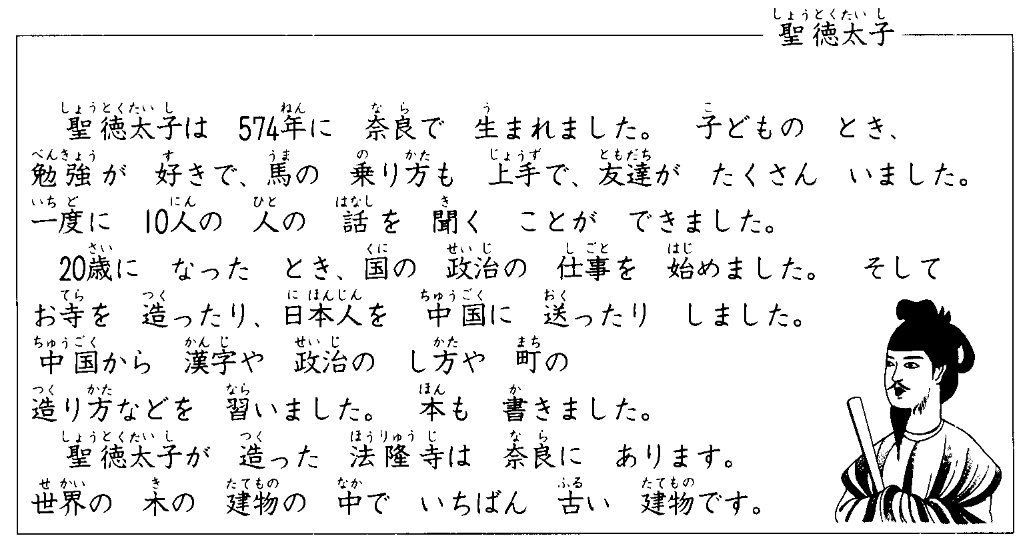 聖徳太子
聖徳太子は 574年に 奈良で 生まれました。 子どもの とき、
勉強が 好きで、馬の 乗り方も 上手で、友達が たくさん いました。
一度に 10人の 人の 話を 聞く ことが できました。
20歳に なった とき、国の 政治の 仕事を 始めました。 そして
お寺を 造ったり、日本人を 中国に 送ったり しました。
中国から 漢字や 政治の し方や 町の
造り方などを 習いました。 本も 書きました。
聖徳太子が 造った 法隆寺は 奈良に あります。
世界の 木の 建物の 中で いちばん 古い 建物です。